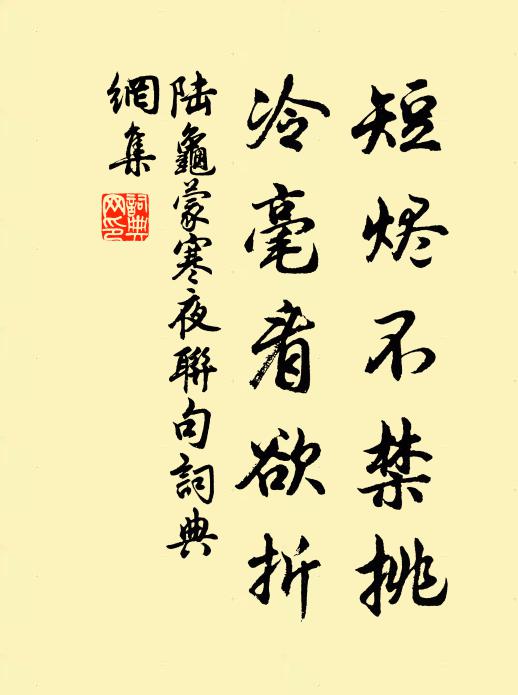 短烬不禁挑
冷毫看欲折
陆龜蒙寒夜聯句詞典
網集
詞典
网印